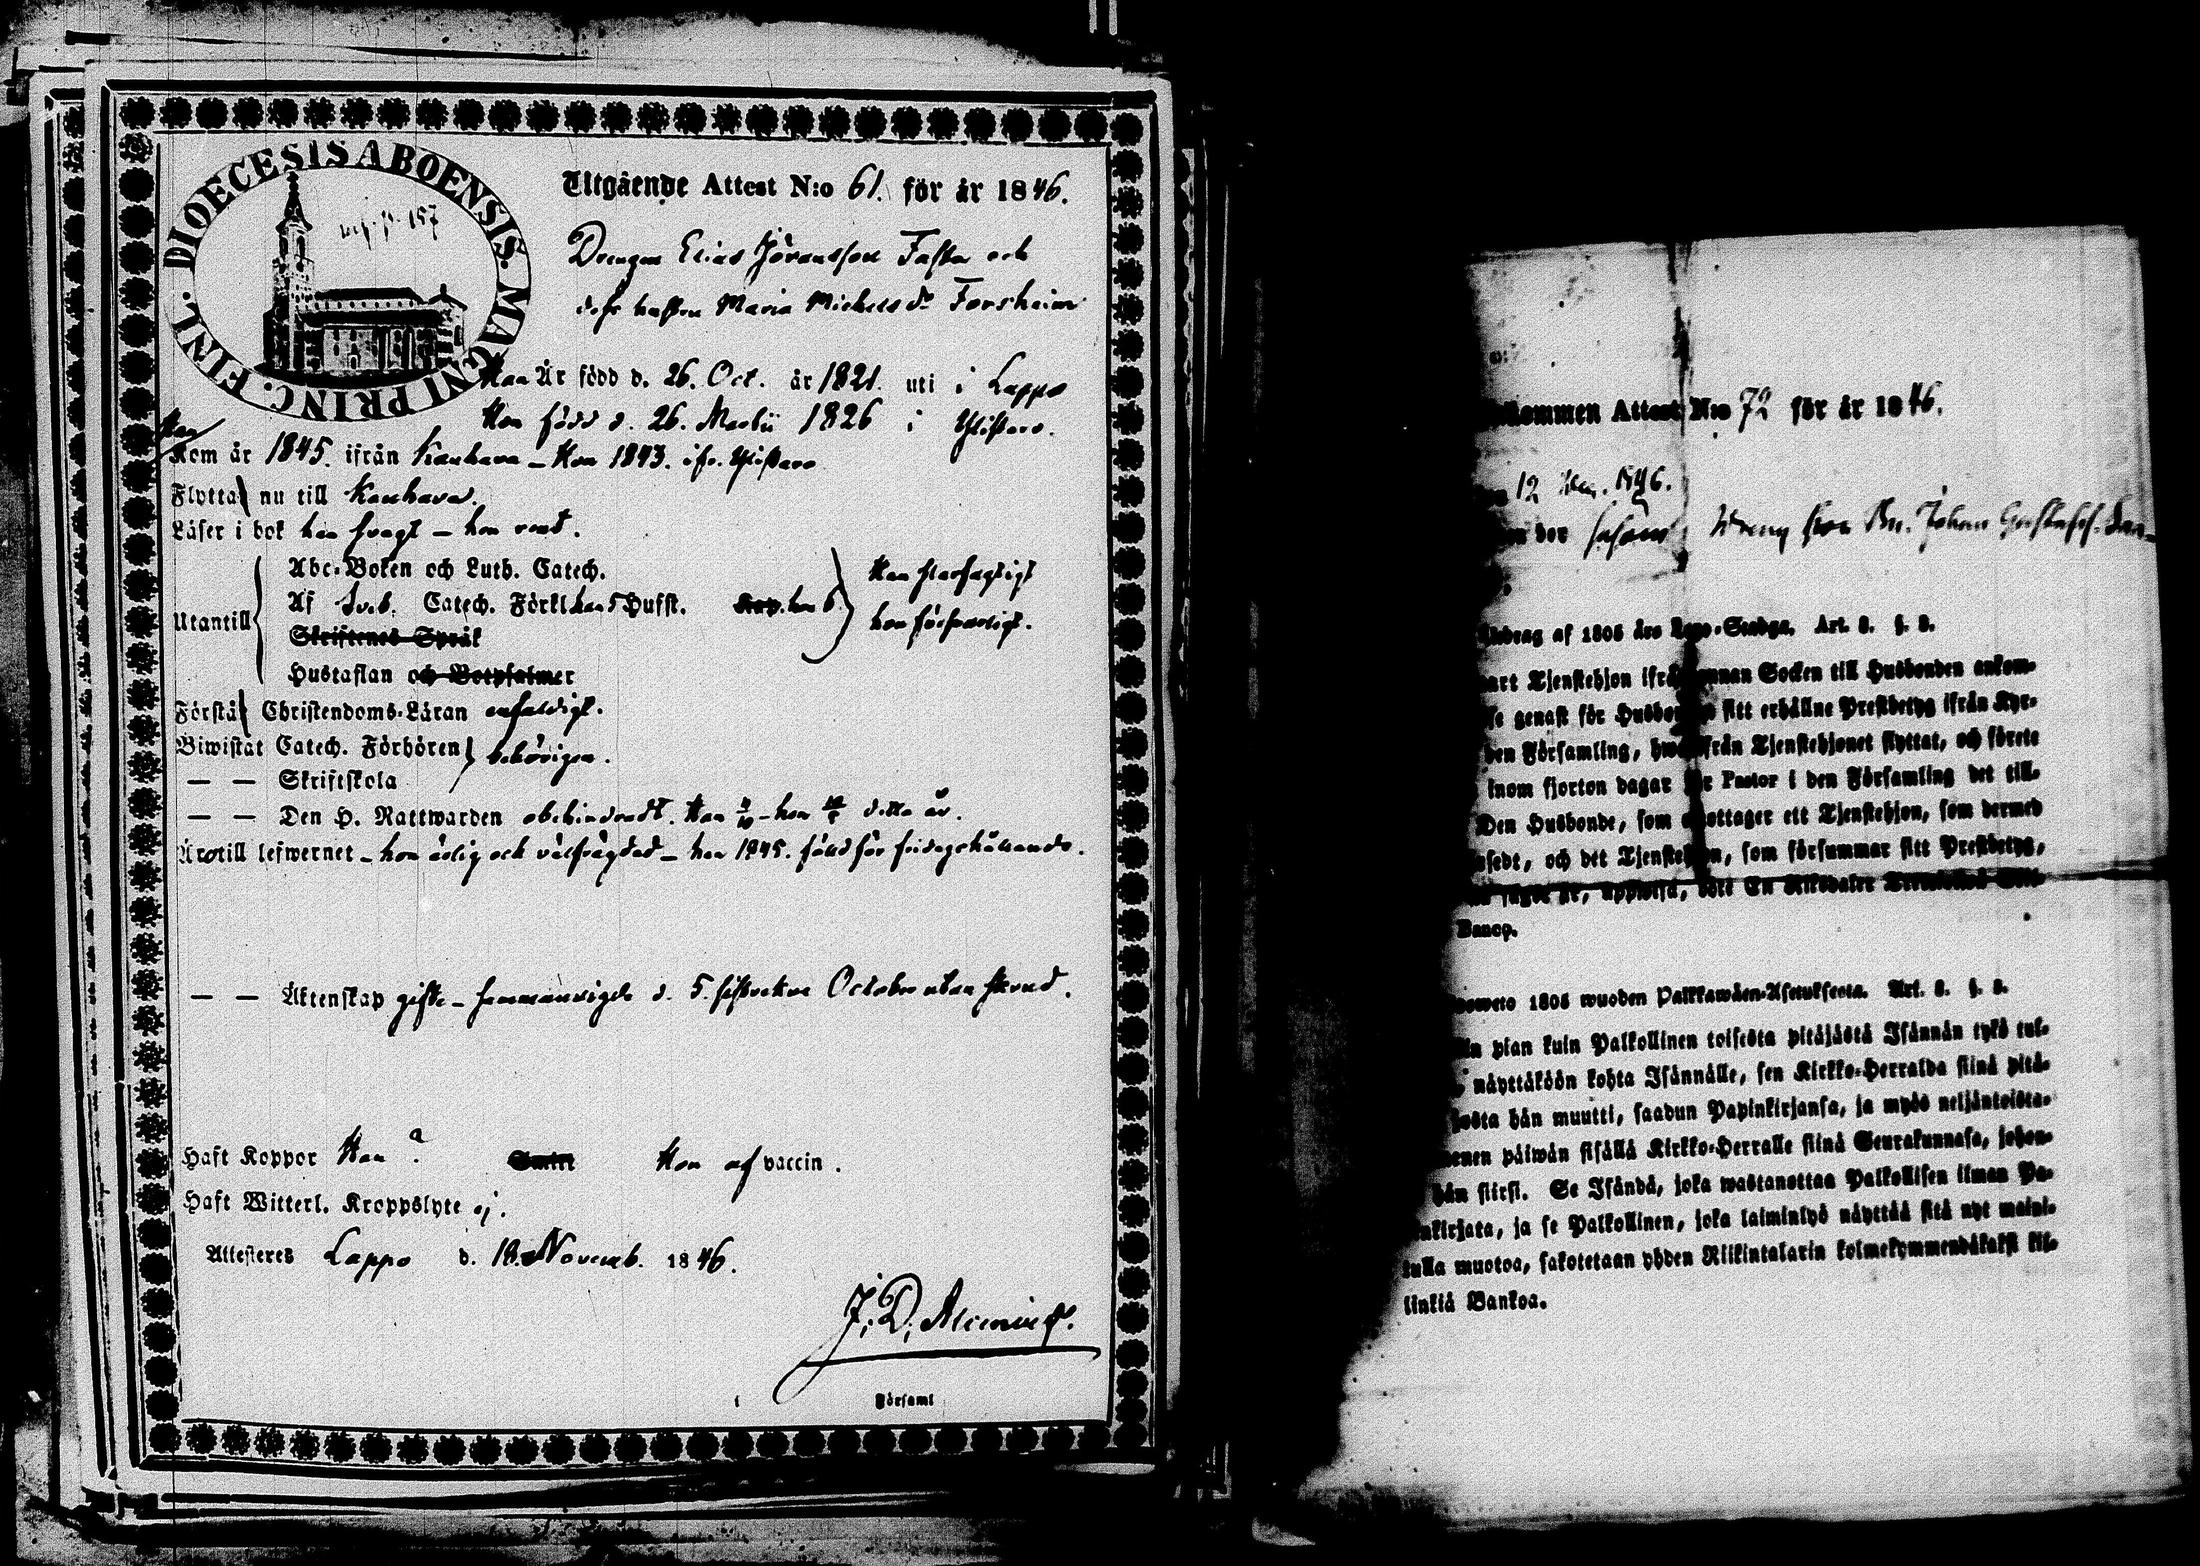 DIOECESIS ABOENSIS. MAGNI PRINC. FINL.
p. 157
Utgående Attest N:o 61. för år 1846.
Drengen Elias Jöransson Fasta och
dess hustru Maria Michelsdr Forsheim
Han Är född d. 26. Oct. år 1821. uti i Lappo
Hon född d. 26. Martii 1826 i Ylistaro.
Han
Kom år 1845. ifrån Kauhava – Hon 1843. ifr. Ylistaro
Flytta nu till Kauhava.
Läser i bok han svagt – hon rent.
Utantill
Abc-Boken och Luth. Catech.
Af Sveb. Catech. Förkl han 5 Hufst. Kap. hon 6
Skriftenes Språk
Hustaflan och Botpsalmer
Han
hon försvarligt.
Förstå Christendoms-Läran enfaldigt.
Biwistat Catech. Förhören behörigen.
— — Skriftskola
— — Den H. Nattwarden obehindradt. Han – hon detta år.
Är till lefwernet – hon ärlig och välfrägdad – han 1845. fälld för
— — Äktenskap gifte – sammanvigde d. 5. sistvekne October utan
Haft Koppor Han ? Hon af vaccin.
Haft Witterl. Kroppslyte ej.
Attesteres Lappo d. 18. Novemb. 1846.
J. D. Alcenius.
Församl
kommen Attest N:o 72 för år 1846.
12 1846.
Dreng hos Bn. Johan Gustafss.
drag af 1805 års Lego-Stadga. Art. 8. §. 8.
art Tjenstehjon ifrå annan Socken till Husbonden ankom-
se genast för Husbonden sitt erhållne Prestbetyg ifrån Kyr-
den Församling, hwarifrån Tjenstehjonet flyttat, och förete
inom fjorton dagar för Pastor i den Församling det till-
Den Husbonde, som emottager ett Tjenstehjon, som dermed
sedt, och det Tjenstehjon, som försummar sitt Prestbetyg,
sagdt är, uppwisa, böte En Riksdaler
Banco.
weto 1805 wuoden Palkkawäen-Asetuksesta. Art. 8. §. 8.
in pian kuin Palkollinen toisesta pitäjästä Isännän tykö tul-
, näyttäköön kohta Isännälle, sen Kirkko-Herralda siinä pitä-
josta hän muutti, saadun Papinkirjansa, ja myös neljäntoista-
enen päiwän sisällä Kirkko-Herralle siinä Seurakunnasa, johon-
hän siirsi. Se Isändä, joka wastanottaa Palkollisen ilman Pa-
nkirjata, ja se Palkollinen, joka laiminlyö näyttää sitä nyt maini-
tulla muotoa, sakotetaan yhden Riikintalarin kolmekymmendäkaksi kil-
linkiä Bankoa.